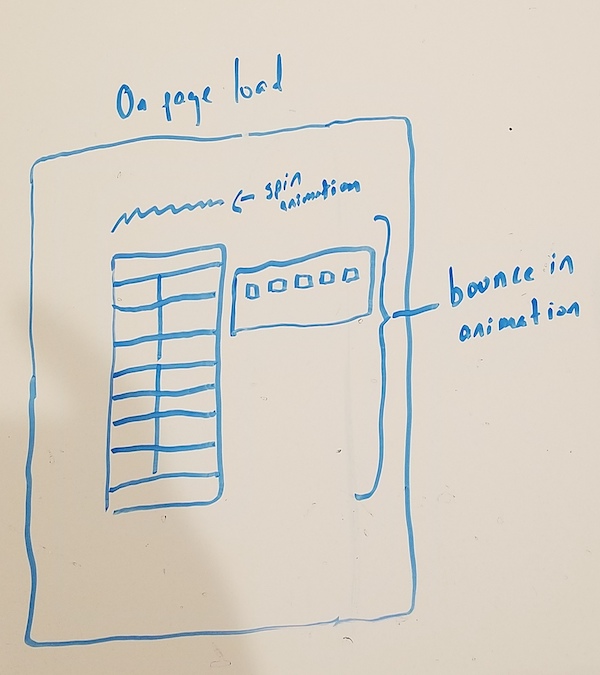 On page load
← spin
animation
bounce in
animation